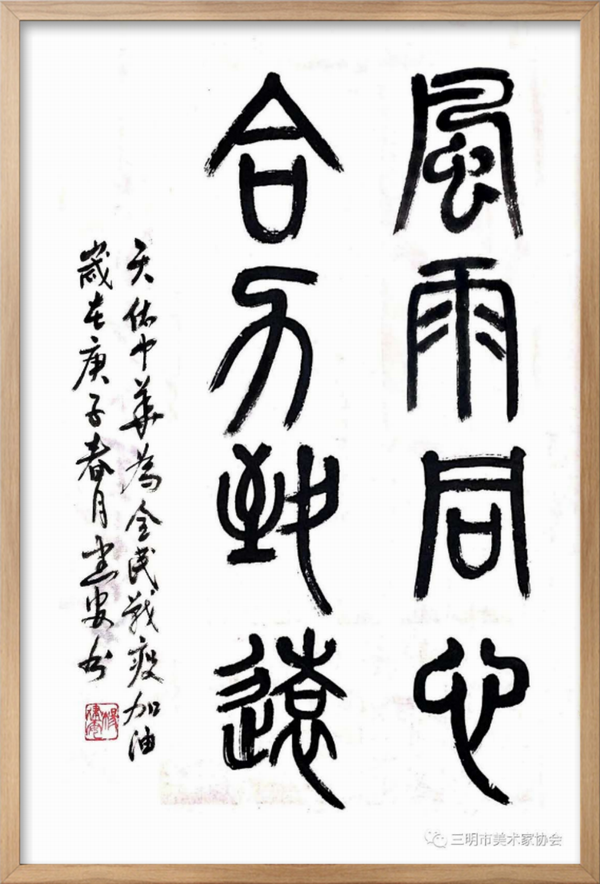 風雨同心
合力致遠
天佑中華為全民戰疫加油
歲在庚子春月建安书
三明市美术家协会